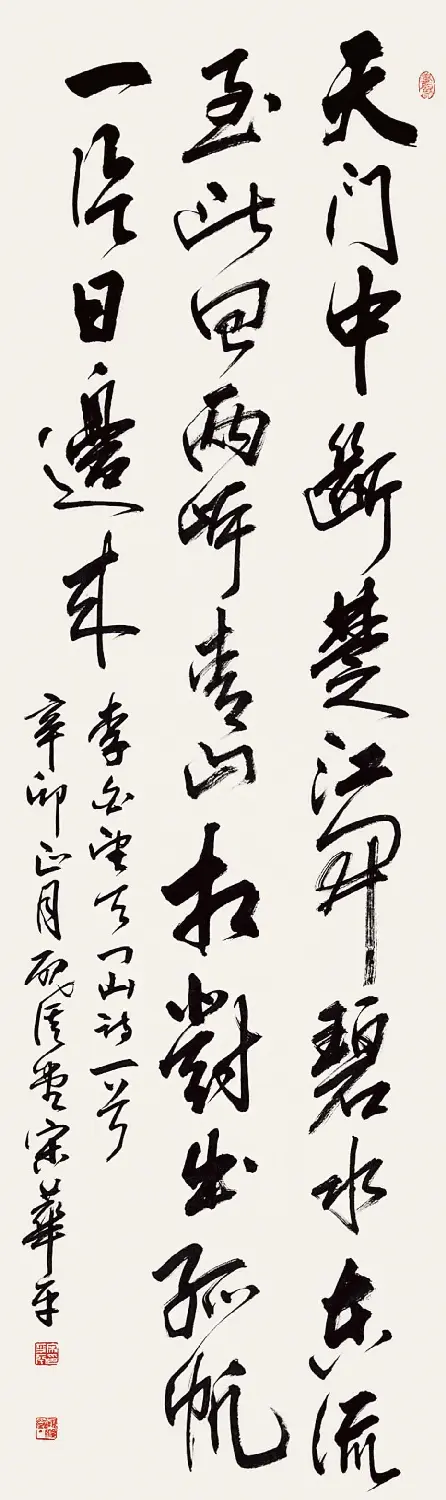 天门中斷楚江開碧水东流
至此回两岸青山相對出孤帆
一片日邊来
李白望天门山诗一首
辛卯正月宋華平